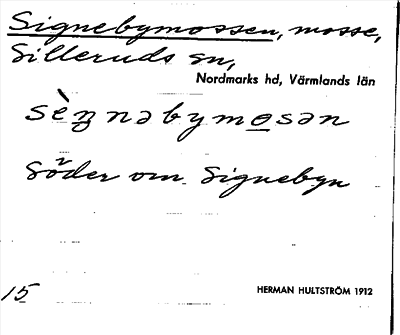 Signebymossen, mosse,
Silleruds sn,
Nordmarks hd, Värmlands län
sèŋnəbymo̲sən
Söder om Signebyn
15
HERMAN HULTSTRÖM 1912